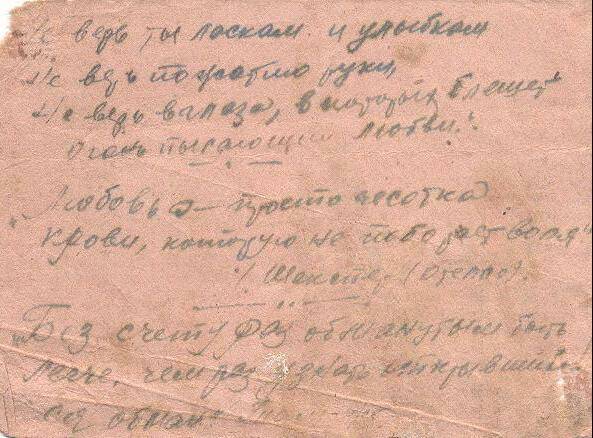 Не верь ты ласкам и улыбкам
Не верь пожатию руки,
Не верь в глаза, в которых блещет
Огонь пылающий любви.
"Любовь – просто чесотка
крови, которую не поборает воля"
Шекспир (Отелло).
"Без счету раз обманутым быть
легче, чем раз узнать открывший
ся обман"